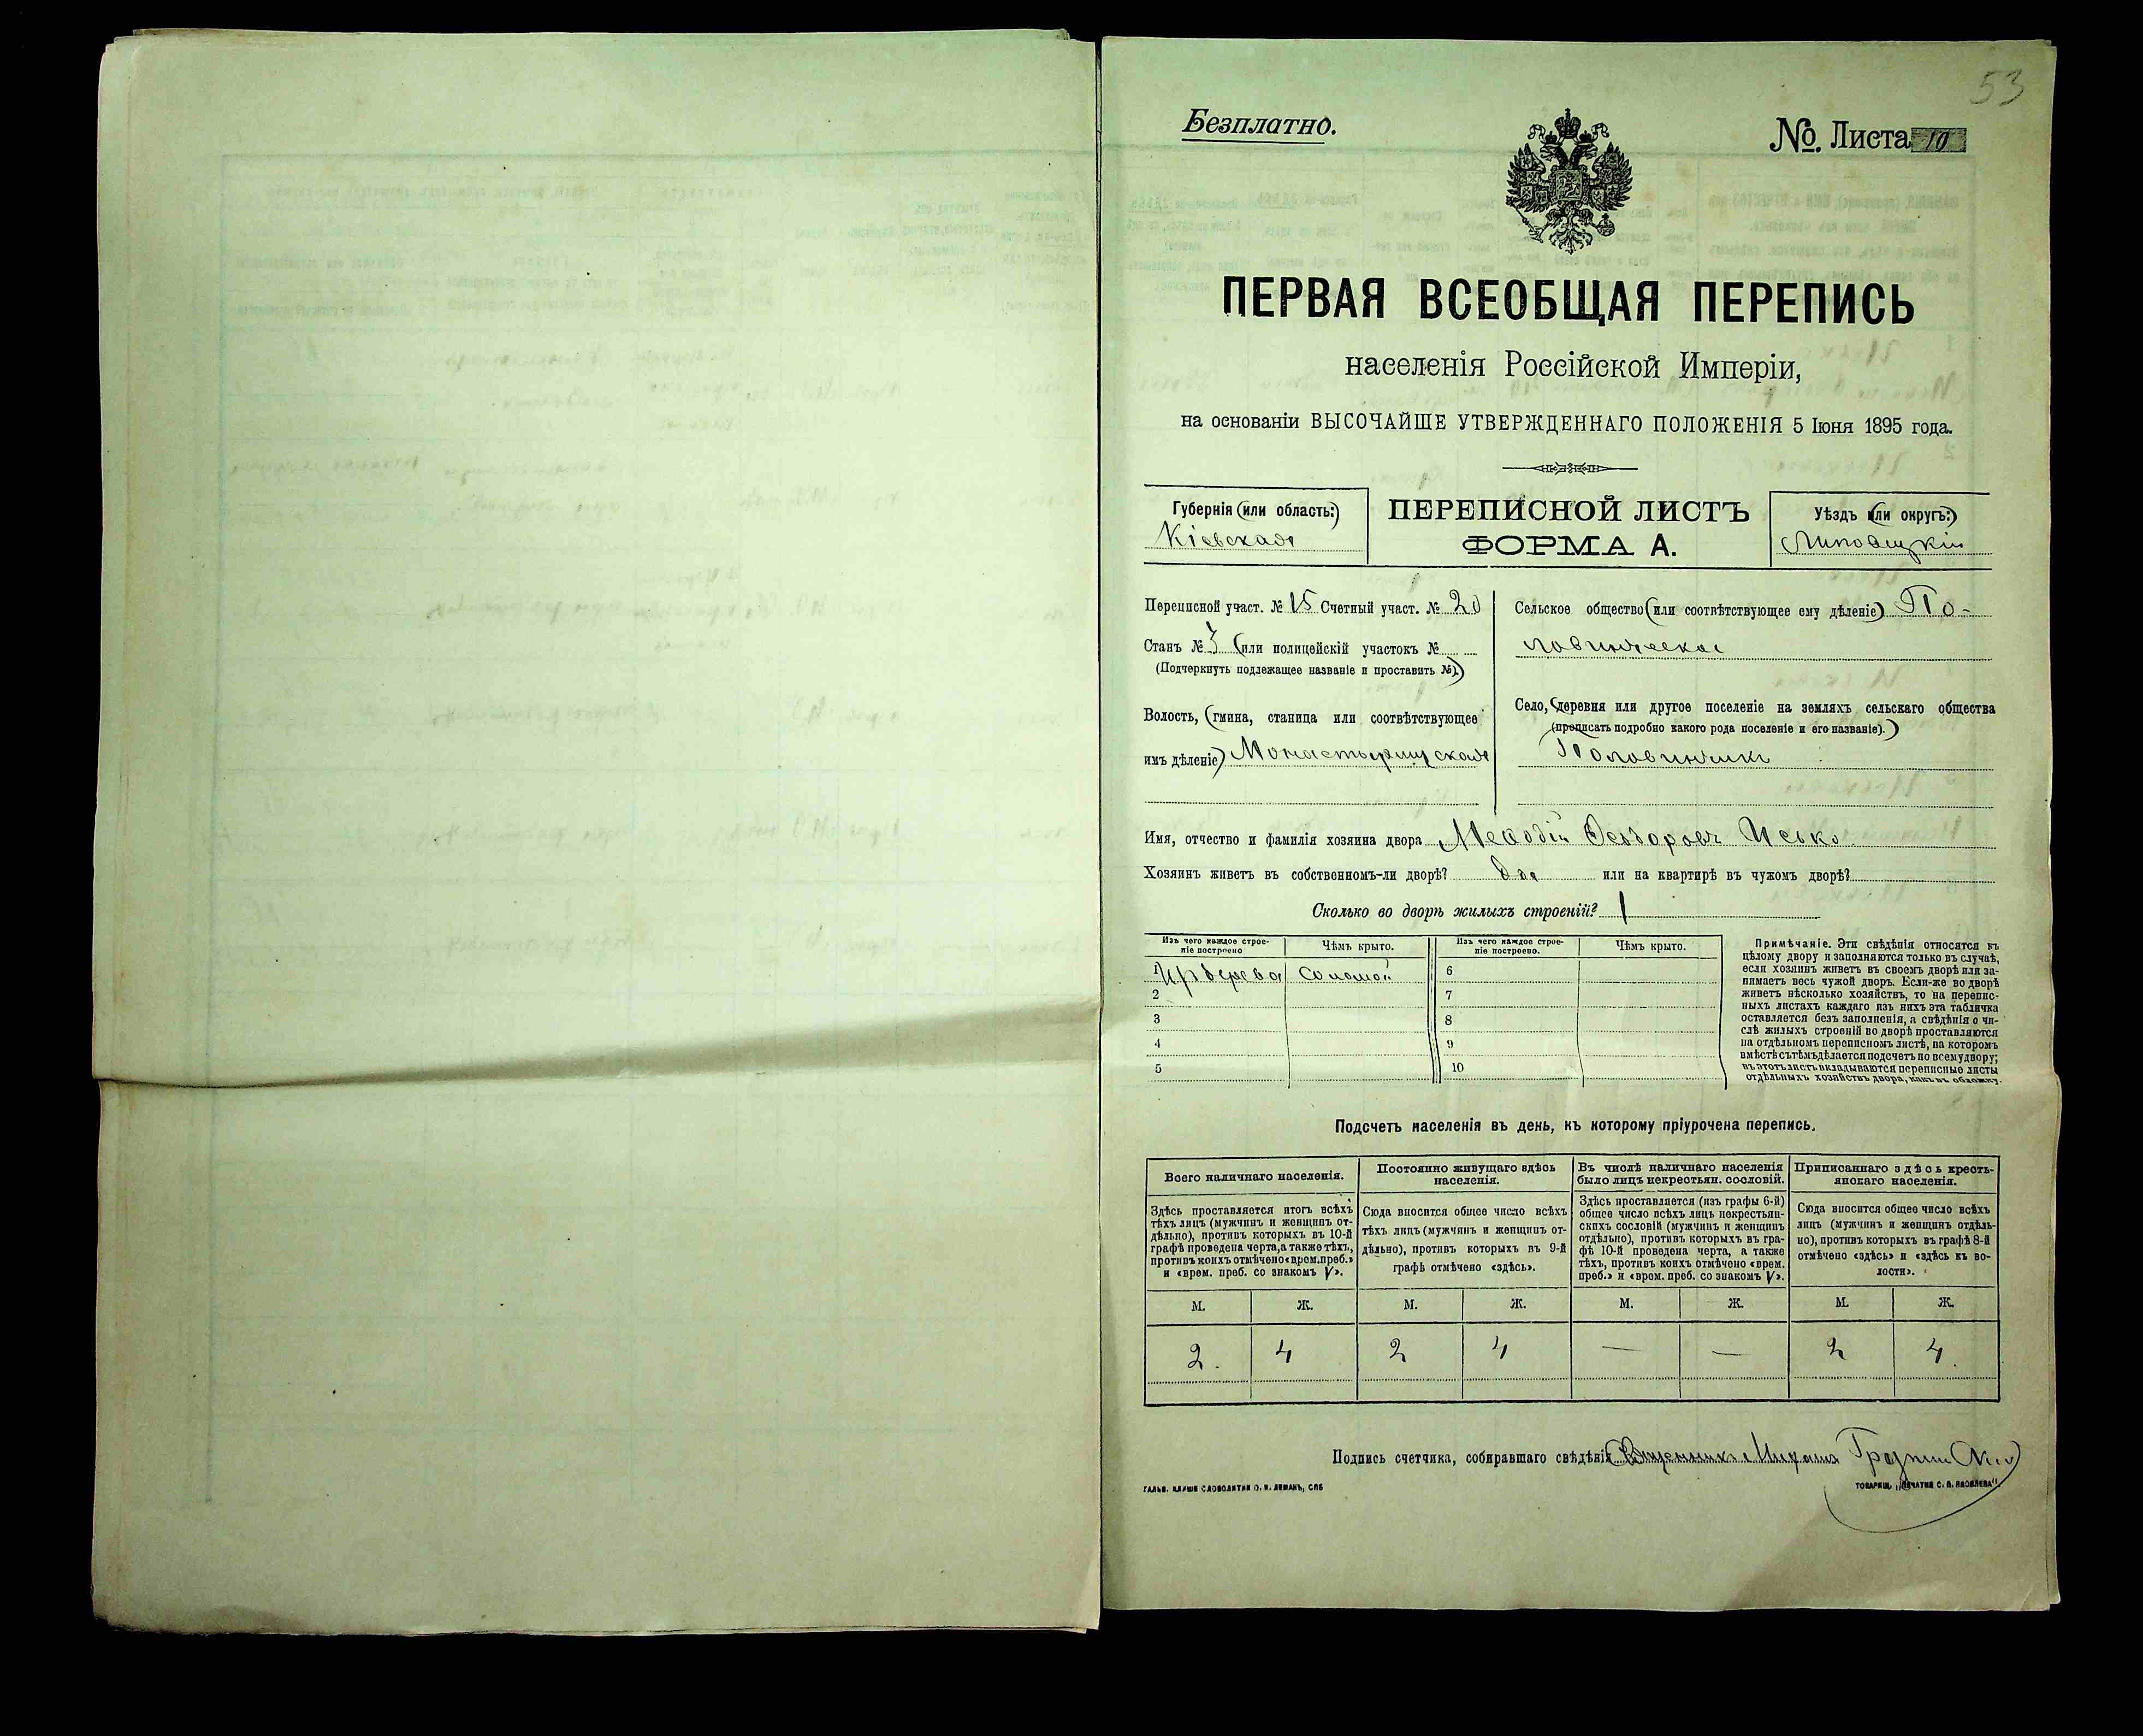 53
Безплатно.
№. Листа 10
ПЕРВАЯ ВСЕОБЩАЯ ПЕРЕПИСЬ
населенія Россійской Имперіи,
на основаніи ВЫСОЧАЙШЕ УТВЕРЖДЕННАГО ПОЛОЖЕНІЯ 5 Іюня 1895 года.
Губернія (или область:)
Кіевская
ПЕРЕПИСНОЙ ЛИСТЪ
ФОРМА А.
Уѣздъ (или округъ:)
Липовецкій
Переписной участ. № 15 Счетный участ. № 20
Станъ № 3 (или полицейскій участокъ №
(Подчеркнуть подлежащее названіе и проставить №).)
Волость, (гмина, станица или соотвѣтствующее
имъ дѣленіе) Монастырищская
Сельское общество (или соотвѣтствующее ему дѣленіе) По-
ловинчское
Село, (деревня или другое поселеніе на земляхъ сельскаго общества
(прописать подробно какого рода поселеніе и его названіе).)
Половинчикъ
Имя, отчество и фамилія хозяина двора Меѳодій Ѳеодоровъ Исько
Хозяинъ живетъ въ собственномъ-ли дворѣ? Да или на квартирѣ въ чужомъ дворѣ?
Сколько во дворѣ жилыхъ строеній? 1
Изъ чего каждое строе-
ніе построено
Чѣмъ крыто.
Изъ чего каждое строе-
ніе построено.
Чѣмъ крыто.
1 Изъ дерева соломой 6
2 7
3 8
4 9
5 10
Примѣчаніе. Эти свѣдѣнія относятся къ
цѣлому двору и заполняются только въ случаѣ,
если хозяинъ живетъ въ своемъ дворѣ или за-
нимаетъ весь чужой дворъ. Если-же во дворѣ
живетъ нѣсколько хозяйствъ, то на перепис-
ныхъ листахъ каждаго изъ нихъ эта табличка
оставляется безъ заполненія, а свѣдѣнія о чи-
слѣ жилыхъ строеній во дворѣ проставляются
на отдѣльномъ переписномъ листѣ, на которомъ
вмѣстѣ съ тѣмъ дѣлается подсчетъ по всему двору;
въ этотъ листъ вкладываются переписные листы
отдѣльныхъ хозяйствъ двора, какъ въ обложку.
Подсчетъ населенія въ день, къ которому пріурочена перепись.
Всего наличнаго населенія.
Постоянно живущаго здѣсь
населенія.
Въ числѣ наличнаго населенія
было лицъ некрестьян. сословій.
Приписаннаго здѣсь кресть-
янскаго населенія.
Здѣсь проставляется итогъ всѣхъ
тѣхъ лицъ (мужчинъ и женщинъ от-
дѣльно), противъ которыхъ въ 10-й
графѣ проведена черта, а также тѣхъ,
противъ коихъ отмѣчено «врем. преб.»
и «врем. преб. со знакомъ V».
Сюда вносится общее число всѣхъ
тѣхъ лицъ (мужчинъ и женщинъ от-
дѣльно), противъ которыхъ въ 9-й
графѣ отмѣчено «здѣсь».
Здѣсь проставляется (изъ графы 6-й)
общее число всѣхъ лицъ некрестьян-
скихъ сословій (мужчинъ и женщинъ
отдѣльно), противъ которыхъ въ гра-
фѣ 10-й проведена черта, а также
тѣхъ, противъ коихъ отмѣчено «врем.
преб.» и «врем. преб. со знакомъ V».
Сюда вносится общее число всѣхъ
лицъ (мужчинъ и женщинъ отдѣль-
но), противъ которыхъ въ графѣ 8-й
отмѣчено «здѣсь» и «здѣсь къ во-
лости».
М. Ж. М. Ж. М. Ж. М. Ж.
2. 4 2 4 — — 2 4.
Подпись счетчика, собиравшаго свѣдѣнія
ГАЛЬВ. КЛИШЕ СЛОВОЛИТНИ О. И. ЛЕМАНЪ, СПБ
ТОВАРИЩ. „ПЕЧАТНЯ С. П. ЯКОВЛЕВА“.